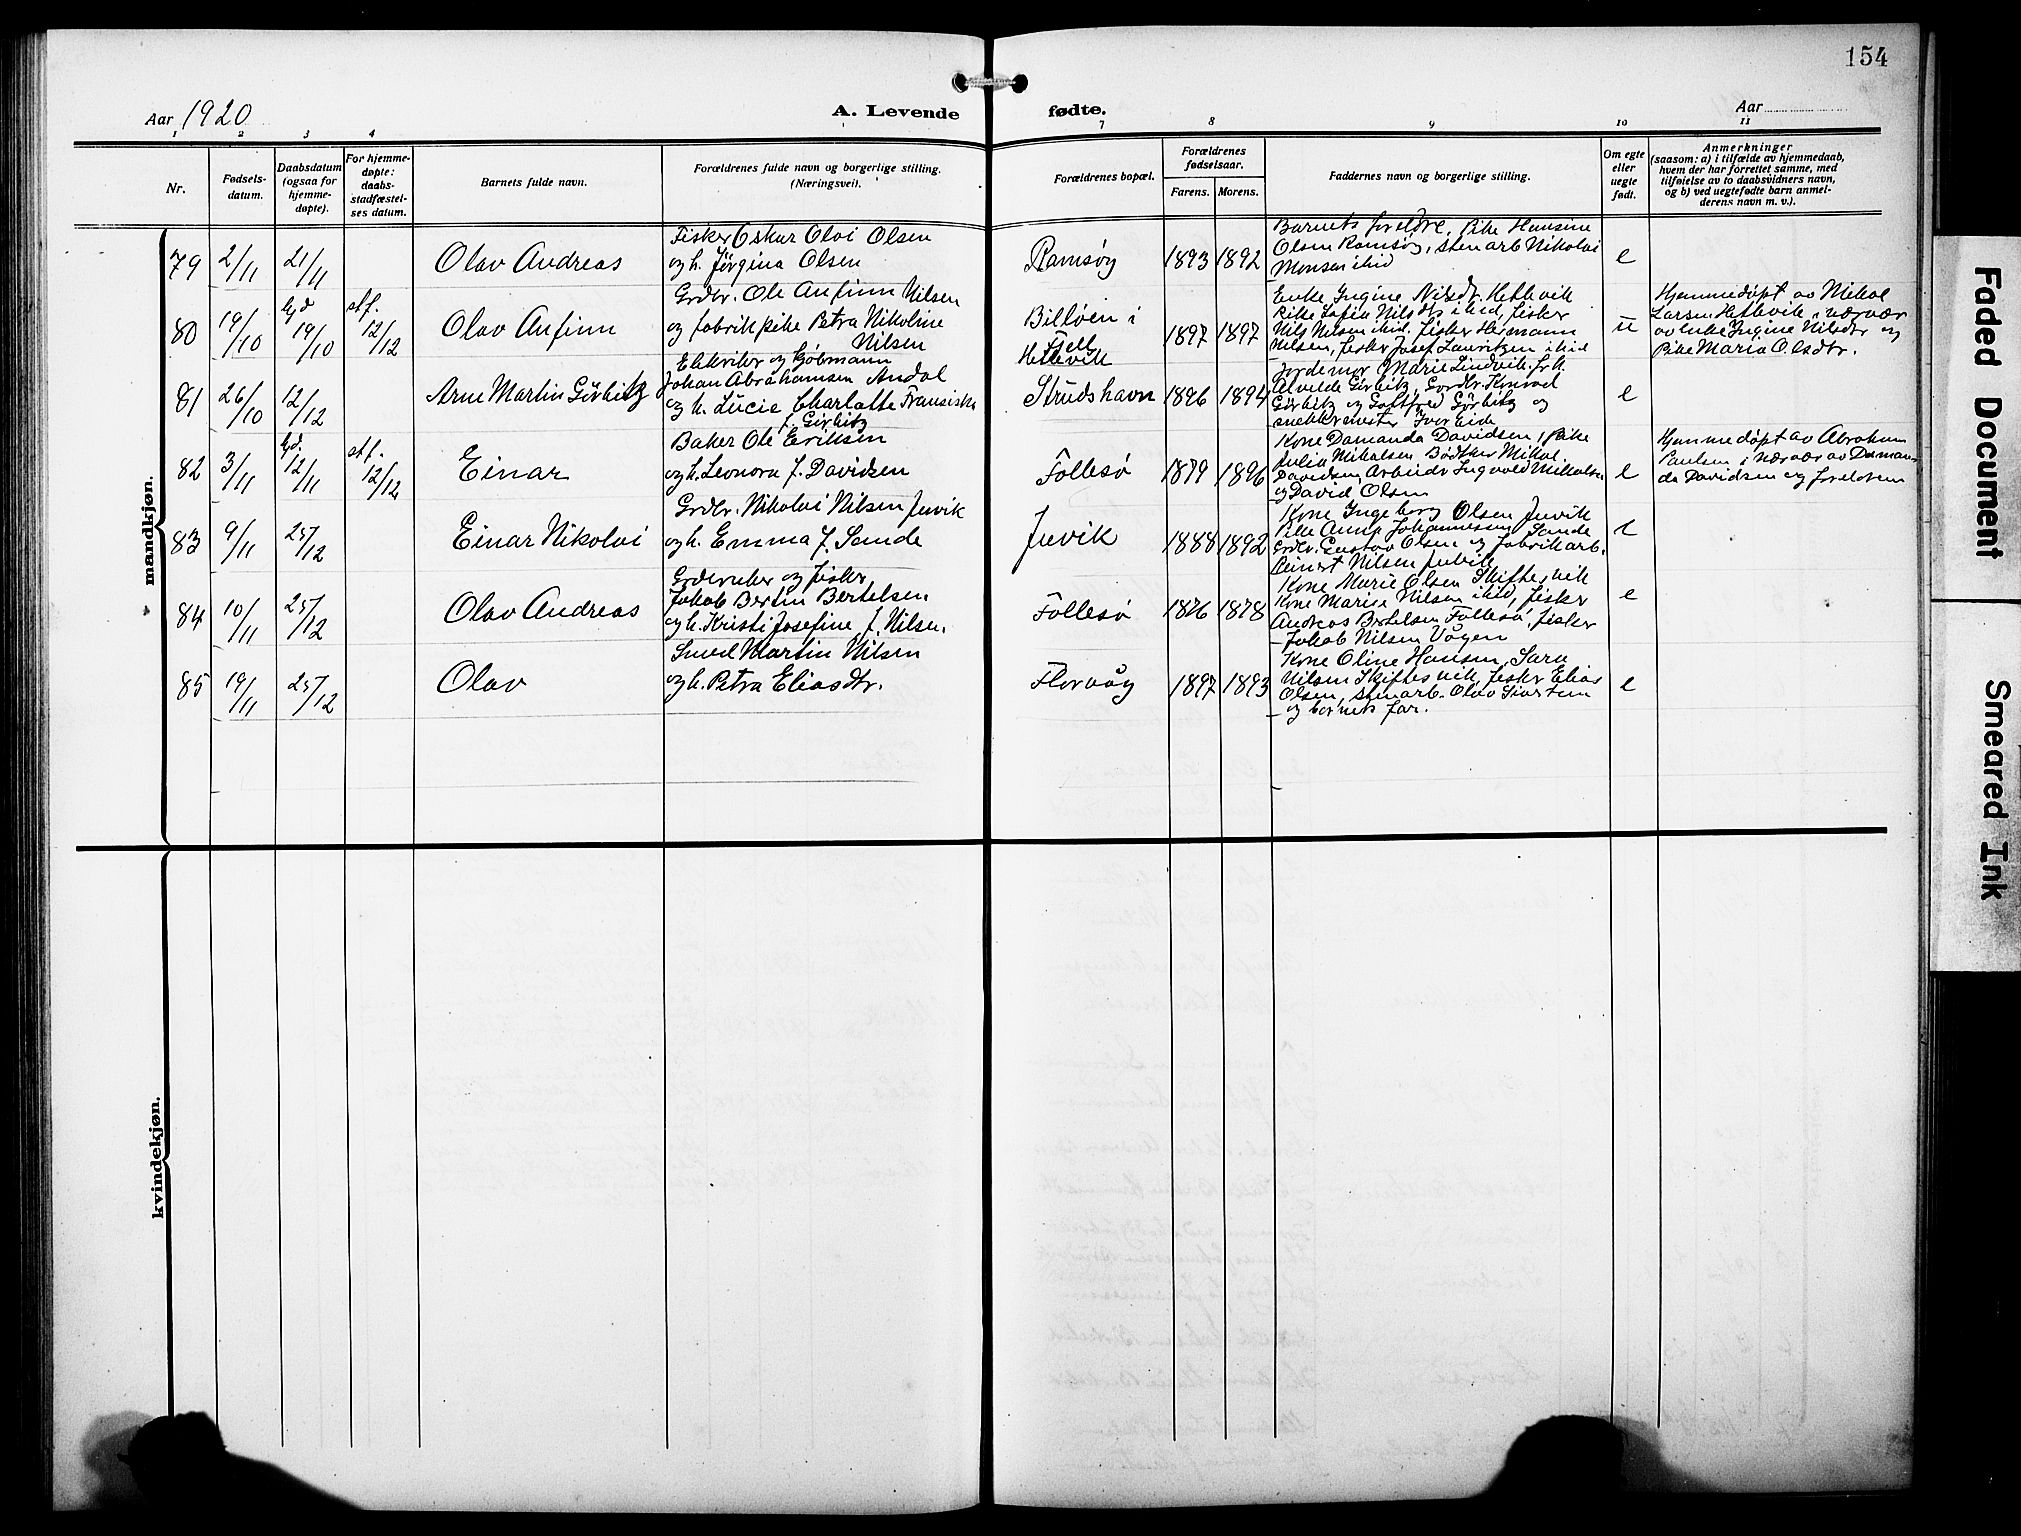 154
Aar 1920
A. Levende
fødte.
Aar
1 2 3 4 7 8 9 10 11
Nr.
Fødsels-
datum.
Daabsdatum
(ogsaa for
hjemme-
døpte).
For hjemme-
døpte:
daabs-
stadfæstel-
ses datum.
Barnets fulde navn.
Forældrenes fulde navn og borgerlige stilling.
(Næringsvei).
Forældrenes bopæl.
Forældrenes
fødselsaar.
Farens.
Morens.
Faddernes navn og borgerlige stilling.
Om egte
eller
uegte
født.
Anmerkninger
(saasom: a) i tilfælde av hjemmedaab,
hvem der har forrettet samme, med
tilføielse av to daabsvidners navn,
og b) ved uegtefødte barn anmel-
derens navn m. v.).
mandkjøn.
79
2/11
21/11
Olav Andreas
Fisker Oskar Olai Olsen
og h. Jörgina Olsen
Ramsöy
1893
1892
Barnets foreldre, Pike Hansine
Olsen Ramsöy, stenarb Nikolai
Monsen ibid
e
80
19/10
hjd
19/10
stf.
12/12
Olav Anfinn
Grdbr. Ole Anfinn Nilsen
og fabrikpike Petra Nikoline
Nilsen
Billøen i
Fjell
Hettevik
1897
1897
Enke Ingine Nilsdtr Hettevik
Pike Sofie Nilsdtr ibid, fisker
Nils Nilsen ibid. fisker Hermann
Nilsen, fisker Josef Lauritzen ibid
u
Hjemmedöpt av Mikal
Larsen Hettevik i nærvær
av enke Ingine Nilsdtr og
Pike Maria Olsdtr.
81
26/10
12/12
Arne Martin Görbitz
Elektriker og Kjöbmann
Johan Abrahamsen Andal
og h. Lucie Charlotte Fransiska
f. Görbitz
Strudshavn
1896
1894
Jordemor Marie Lindvik, frk.
Alvilde Görbitz, Gardbr. Konrad
Görbitz og Gottfred Görbitz og
snekkermester Ivar Eide
e
82
3/11
hjd.
12/11
stf.
12/12
Einar
Baker Ole Eriksen
og h. Leonora f. Davidsen
Follesö
1879
1896
Kone Damanda Davidsen, Pike
Julia Mikalsen Bödtker Mikal
Davidsen, Arbeider Ingvald Mikalsen
og David Olsen
e
Hjemmedöpt av Abraham
Paulsen i nærvær av Daman-
da Davidsen og foreldrene
83
9/11
25/12
Einar Nikolai
Grdbr. Nikolai Nilsen Juvik
og h. Emma f. Sande
Juvik
1888
1892
Kone Ingeborg Olsen Juvik
Pike Anna Johannesen Sande
Grdbr. Gustav Olsen og fabrikarb.
Nilsen Juvik
e
84
10/11
25/12
Olav Andreas
Grdbruker og fisker
Jakob Bertin Bertelsen
og h. Kristi Josefine f. Nilsen.
Follesö
1876
1878
Kone Marie Olsen Skiftesvik
Kone Marie Nilsen ibid, fisker
Andreas Bertelsen Follesö, fisker
Jakob Nilsen Vågen
e
85
19/11
25/12
Olav
Smed Martin Nilsen
og h. Petra Eliasdtr.
Florvåg
1897
1893
Kone Oline Hansen, Sara
Nilsen Skiftesvik, fisker Elias
Olsen, stenarb. Olav Sivertsen
og barnets far.
e
kvindekjøn.
Faded Document
Smeared Ink